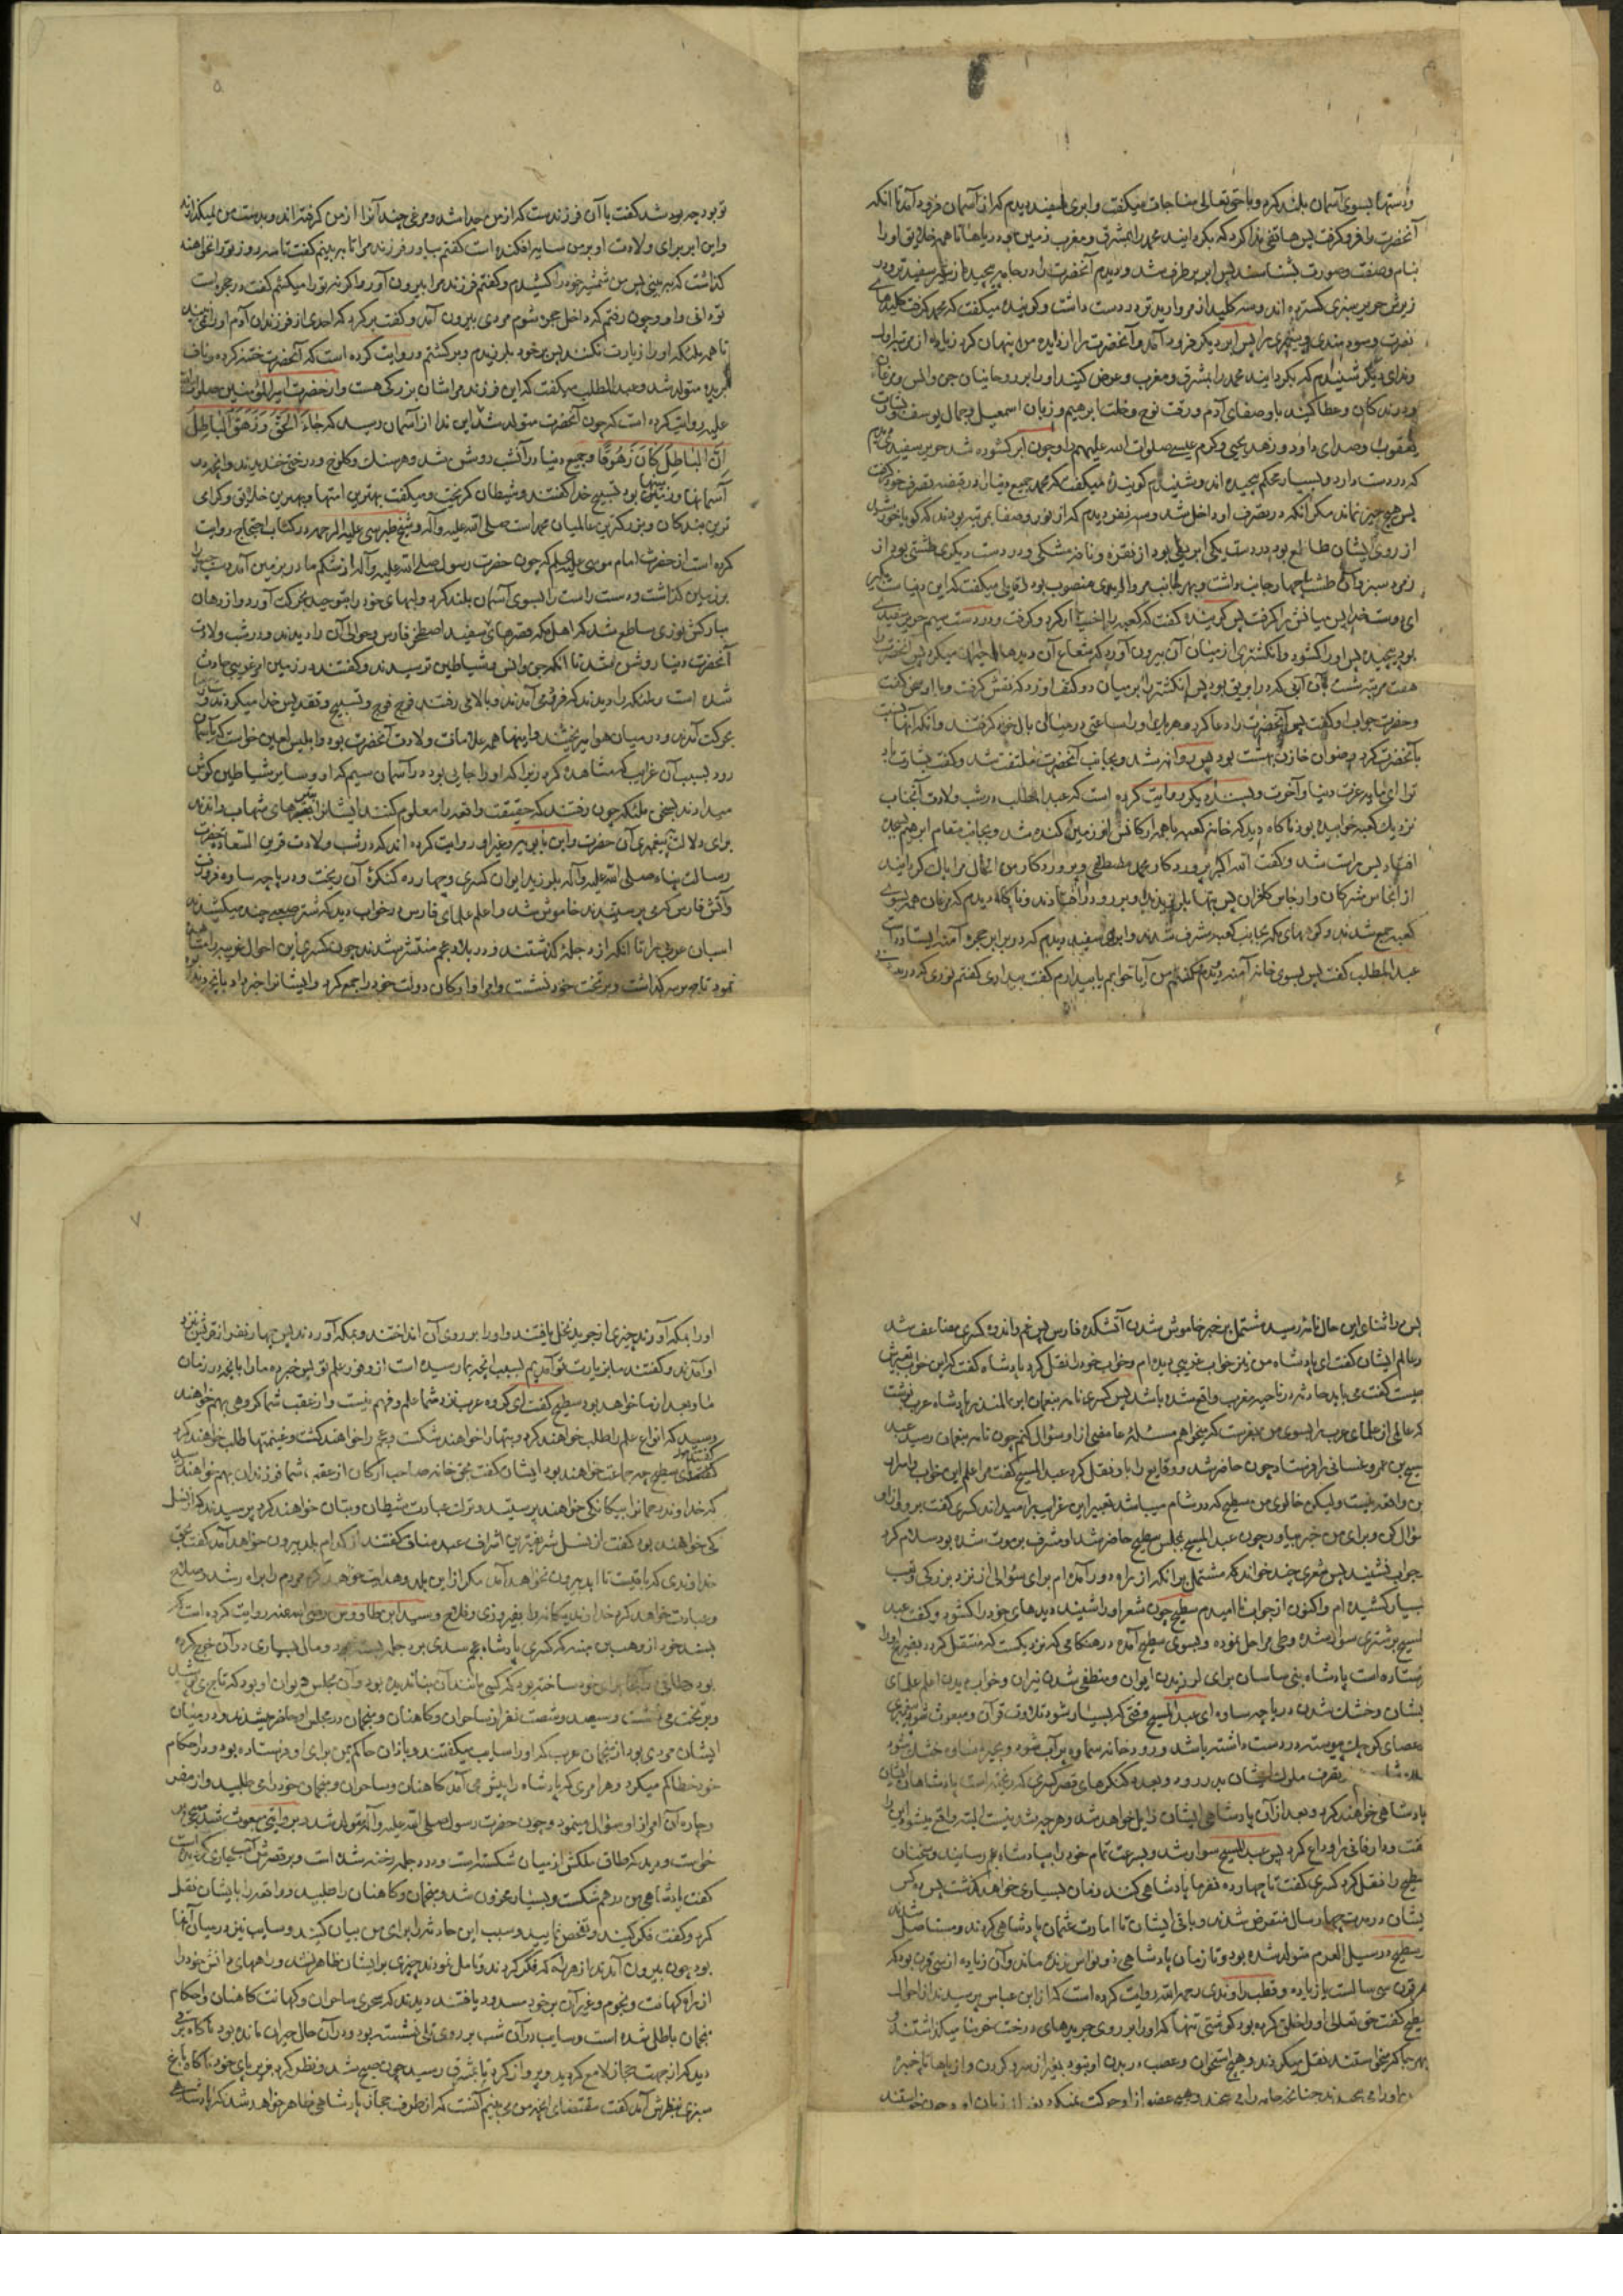 ودستها بسوی آسمان بلند کرده وباحق تعالی مناجات میکفت وابری سفید دیدم که از آسمان فرود آمد تا آنکه
آنحضرت را فرو کرفت پس هاتفی ندا کرد که بکردانید محمد را بمشرق ومغرب زمین ودریاها تا همه خلایق او را
بنام وصفت وصورت بشناسند پس ابر برطرف شد ودیدم آنحضرت را در جامه پیچیده از شیر سفیدتر ودر
زیرش حریر سبزی کسترده اند وسه کلید از مروارید تر در دست داشت وکوینده میکفت که محمد کرفت کلیدهای
نصرت وسودمندی وپیغمبری را پس ابر دیکر فرود آمد وآنحضرت را از دیده من پنهان کرد زیاده از مرتبه اول
وندای دیکر شنیدم که بکردانید محمد را بمشرق ومغرب وعرض کنید او را بر روحانیان جن وانس ومرغان
ودرندکان وعطا کنید باو صفای آدم ورقت نوح وخلت ابرهیم وزبان اسمعیل وجمال یوسف وبشارت
یعقوب وصدای داود وزهد یحیی وکرم عیسی صلوات الله علیهم وچون ابر کشوده شد حریر سفیدی دیدم
که در دست دارد وبسیار محکم پیچیده اند وشنیدم کوینده میکفت که محمد جمیع دنیا را در قبضه تصرف خود کرفت
پس هیچ چیز نماند مکر آنکه در تصرف او داخل شد وسه نفر دیدم که از نور وصفا بمرتبه بودند که کویا خورشید
از روی ایشان طالع بود در دست یکی ابریقی بود از نقره ونافه مشکی ودر دست دیکری طشتی بود از
زمرد سبز وآن طشت چهار جانب داشت وبهر جانب مرواریدی منصوب بود وقایلی میکفت که این دنیاست بکیر
ای دوست خدا پس میانش را کرفت پس کوینده کفت که کعبه را اختیار کرد وکرفت ودر دست سیم حریر سفیدی
بود پیچیده پس او را کشود وانکشتری از میان آن بیرون آورد که شعاع آن دیدها را حیران میکرد پس آنحضرت را
هفت مرتبه شست بآن آبی که در ابریق بود پس انکشتر را بر میان دو کتف او زد که نقش کرفت وبا او سخن کفت
وحضرت جواب او کفت پس آنحضرت را دعا کرد وهر یک او را ساعتی در میان بال خود کرفتند وآنکه اینها نسبت
بآنحضرت کرد رضوان خازن بهشت بود پس روانه شد وبجانب آنحضرت ملتفت شد وکفت بشارت باد
ترا ای مایه عزت دنیا وآخرت وبسند دیکر روایت کرده است که عبد المطلب در شب ولادت آنجناب
نزدیک کعبه خوابیده بود ناکاه دید که خانه کعبه با همه ارکانش از زمین کنده شد وبجانب مقام ابرهیم بسجده
افتاد پس راست شد وکفت الله اکبر پروردکار محمد مصطفی وپروردکار من الحال مرا پاک کردانید
از انجاس مشرکان وارجاس کافران پس بتها بلرزیدند وبر رو در افتادند وناکاه دیدم که مرغان همه بسوی
کعبه جمع شدند وکوههای مکه بجانب کعبه مشرف شدند وابری سفید دیدم که در برابر حجره آمنه ایستاده است
عبد المطلب کفت پس بسوی خانه آمنه دویدم وکفتم من آیا خوابم یا بیدارم کفت بیداری کفتم نوری که در پیشانی
۵
تو بود چه بود شد کفت با آن فرزندست که از من جدا شد ومرغی چند آنرا از من کرفته اند وبدست من نمیکذارند
واین ابر برای ولادت او بر من سایه افکنده است کفتم بیاور فرزند مرا تا ببینم کفت تا سه روز تو را نخواهند
کذاشت که ببینی پس من شمشیر خود را کشیدم وکفتم فرزند مرا بیرون آور واکر نه تو را میکشم کفت در حجره است
تو دانی واو چون رفتم که داخل حجره شوم مردی بیرون آمد وکفت برکرد که احدی از فرزندان آدم او را نمیبیند
تا همه ملئکه او را زیارت نکنند پس بر خود بلرزیدم وبرکشتم وروایت کرده است که آنحضرت ختنه کرده وناف
بریده متولد شد وعبد المطلب میکفت که این فرزند مرا شان بزرکی هست واز حضرت امیر المؤمنین صلوات الله
علیه روایت کرده است که چون آنحضرت متولد شد این ندا از آسمان رسید که جَاءَ الْحَقُّ وَزَهَقَ الْبَاطِلُ
اِنَّ الْبَاطِلَ كَانَ زَهُوقًا وجمیع دنیا در آنشب روشن شد وهر سنک وکلوخ ودرختی خندیدند وآنچه در
آسمانها وزمینها بود تسبیح خدا کفتند وشیطان کریخت ومیکفت بهترین امتها وبهترین خلایق وکرامی
ترین بندکان وبزرکترین عالمیان محمد است صلی الله علیه وآله وشیخ طبرسی علیه الرحمه در کتاب احتجاج روایت
کرده است از حضرت امام موسی علیه السلم که چون حضرت رسول صلی الله علیه وآله از شکم مادر بزمین آمد دست چپ را
بر زمین کذاشت ودست راست را بسوی آسمان بلند کرد ولبهای خود را بتوحید بحرکت آورد واز دهان
مبارکش نوری ساطع شد که اهل مکه قصرهای سفید اصطخر فارس وحوالی آن را دیدند ودر شب ولادت
آنحضرت دنیا روشن شد تا آنکه جن وانس وشیاطین ترسیدند وکفتند در زمین امر غریبی حادث
شده است وملئکه را دیدند که فرود می آمدند وبالا می رفتند فوج فوج وتسبیح وتقدیس خدا میکردند
بحرکت آمدند ودر میان هوا میریختند واینها همه علامات ولادت آنحضرت بود وابلیس لعین خواست که بآسمان
رود بسبب آن غرایب که مشاهده کرد زیرا که او را جایی بود در آسمان سیم که او وسایر شیاطین کوش
میدادند بسخن ملئکه چون رفتند که حقیقت واقعه را معلوم کنند ایشانرا بتیرهای شهاب راندند
برای دلالت پیغمبری آن حضرت وابن بابویه وغیر او روایت کرده اند که در شب ولادت قرین السعاده حضرت
رسالت پناه صلی الله علیه وآله بلرزید ایوان کسری وچهارده کنکره آن ریخت ودریاچه ساوه فرو رفت
وآتش فارس که می پرستیدند خاموش شد واعلم علمای فارس در خواب دید که شتر صعبی چند میکشیدند
اسبان عربی را تا آنکه از دجله کذشتند ودر بلاد عجم منتشر شدند چون کسری این احوال غریبه را مشاهده
نمود تاج بر سر کذاشت وبر تخت خود نشست وامرا وارکان دولت خود را جمع کرد وایشانرا خبر داد بآنچه دیده
۶
پس در اثنای این حال نامه رسید مشتمل بر خبر خاموش شدن آتشکده فارس پس غم واندوه کسری مضاعف شد
وعالم ایشان کفت ای پادشاه من نیز خواب غریبی دیده ام وخواب خود را نقل کرد پادشاه کفت که این خواب تعبیرش
چیست کفت می باید حادثه در ناحیه مغرب واقع شده باشد پس کسری نامه بنعمان ابن المنذر پادشاه عرب نوشت
که عالمی از علمای عرب را بسوی من بفرست که میخواهم مسئله غامضی از او سؤال کنم چون نامه بنعمان رسید عبد
مسیح بن عمرو غسانی را فرستاد چون حاضر شد ووقایع را باو نقل کرد عبد المسیح کفت مرا علم این خواب واسرار
این واقعه نیست ولیکن خالوی من سطیح که در شام میباشد تعبیر این غرایب را میداند کسری کفت برو واز او
سؤال کن وبرای من خبر بیاور چون عبد المسیح بمجلس سطیح حاضر شد او مشرف بر موت شده بود سلام کرد
جواب نشنید پس شعری چند خواند که مشتمل بر آنکه از راه دور آمده ام برای سؤالی از نزد بزرکی وتعب
بسیار کشیده ام واکنون از جواب ناامیدم سطیح چون شعر او را شنید دیدهای خود را کشود وکفت عبد
المسیح بر شتری سوار شده وطی مراحل نموده وبسوی سطیح آمده در هنکامی که نزدیکست که منتقل کردد بضریح او را
فرستاده است پادشاه بنی ساسان برای لرزیدن ایوان ومنطفی شدن نیران وخواب دیدن اعلم علمای
ایشان وخشک شدن دریاچه ساوه ای عبد المسیح وقتی که بسیار شود تلاوت قرآن ومبعوث شود پیغمبری
عصای کوچک پیوسته در دست داشته باشد ورودخانه سماوه پرآب شود وبحیره ساوه خشک شود
بتصرف ملوک ایشان بدر رود وبعدد کنکرهای قصر کسری که ریخته است پادشاهان ایشان
پادشاهی خواهند کرد وبعد از آن پادشاهی ایشان زایل خواهد شد وهر چه شدنیست البته واقع میشود این را
کفت ودار فانی را وداع کرد پس عبد المسیح سوار شد وبسرعت تمام خود را بپادشاه عجم رسانید وسخنان
سطیح را نقل کرد کسری کفت تا چهارده نفر ما پادشاهی کنند زمان بسیاری خواهد کذشت پس ده کس
ایشان در مدت چهار سال منقرض شدند وباقی ایشان تا امارت عثمان پادشاهی کردند ومستاصل شدند
وسطیح در سیل العرم متولد شده بود وتا زمان پادشاهی ذونواس زنده ماند وآن زیاده از سی قرن بود که
هر قرن سی سالست یا زیاده وقطب راوندی رحمه الله روایت کرده است که از ابن عباس پرسیدند از احوال
سطیح کفت حق تعالی او را خلق کرده بود کوشتی تنها که او را بر روی جریدهای درخت خرما میکذاشتند و
بهر جا که میخواستند نقل میکردند وهیچ استخوان وعصب در بدن او نبود بغیر از سر وکردن واز پاها تا چنبره
او را می پیچیدند چنانچه جامه را می پیچند وهیچ عضو از او حرکت نمیکرد بغیر از زبان او وچون خواستند
۷
او را بمکه آورند چیزی از جرید نخل بافتند واو را بر روی آن انداختند وبمکه آوردند پس چهار نفر از قریش نزد
او آمدند وکفتند ما بزیارت تو آمدیم بسبب آنچه بما رسیده است از وفور علم تو پس خبر ده ما را بآنچه در زمان
ما وبعد از ما خواهد بود سطیح کفت ای کروه عرب نزد شما علم وفهم نیست واز عقب شما کروهی بهم خواهند
رسید که انواع علم را طلب خواهند کرد وبتها را خواهند شکست وعجم را خواهند کشت وغنیمتها طلب خواهند کرد
کفتند ای سطیح چه جماعت خواهند بود ایشان کفت بحق خانه صاحب ارکان از عقب شما فرزندان بهم خواهند رسید
که خداوند رحمانرا بیکانکی خواهند پرستید وترک عبادت شیطان وبتان خواهند کرد پرسیدند که از نسل
کی خواهند بود کفت از نسل شریفترین اشراف عبد مناف کفتند از کدام بلد بیرون خواهد آمد کفت بحق
خداوندی که باقیست تا ابد بیرون نخواهد آمد مکر از این بلد وهدایت خواهد کرد مردم را براه رشد وصلاح
وعبادت خواهد کرد خداوند یکانه را بفیروزی وفلاح وسید ابن طاووس رضی الله عنه روایت کرده است که
بسند خود از وهب بن منبه که کسری پادشاه عجم سدی بر دجله بسته بود ومال بسیاری در آن خرج کرده
بود وطاقی در آنجا برای خود ساخته بود که کسی مانند آن بنا ندیده بود وآن مجلس دیوان او بود که تاج بر سر
وبر تخت می نشست وسیصد وشصت نفر از ساحران وکاهنان ومنجمان در مجلس او حاضر میشدند ودر میان
ایشان مردی بود از منجمان عرب که او را سایب میکفتند وباذان حاکم یمن برای او فرستاده بود ودر احکام
خود خطا کم میکرد وهر امری که پادشاه را پیش می آمد کاهنان وساحران ومنجمان خود را می طلبید واز مفر
وچاره آن امر از او سؤال مینمود وچون حضرت رسول صلی الله علیه وآله متولد شد وبروایتی مبعوث شد
خواست ودید که طاق ملکش از میان شکسته است وسد دجله رخنه شده است
کفت پادشاهی من در هم شکست وبسیار محزون شد ومنجمان وکاهنان را طلبید وواقعه را بایشان نقل
کرد وکفت فکر کنید وتفحص نمایید وسبب این حادثه را برای من بیان کنید وسایب نیز در میان آنها
بود چون بیرون آمدند از هر راه که فکر کردند وتامل نمودند چیزی بر ایشان ظاهر نشد وراههای دانش خود را
از راه کهانت ونجوم وغیر آن بر خود مسدود یافتند دیدند که سحر ساحران وکهانت کاهنان واحکام
منجمان باطل شده است وسایب در آن شب بر روی تلی نشسته بود ودر آن حال حیران مانده بود ناکاه برقی
دید که از جهت حجاز لامع کردید وپرواز کرد تا بمشرق رسید چون صبح شد ونظر کرد بزیر پای خود ناکاه باغ
سبزی بنظرش آمد کفت مقتضای آنچه من می بینم آنست که از طرف حجاز پادشاهی ظاهر خواهد شد که پادشاهی